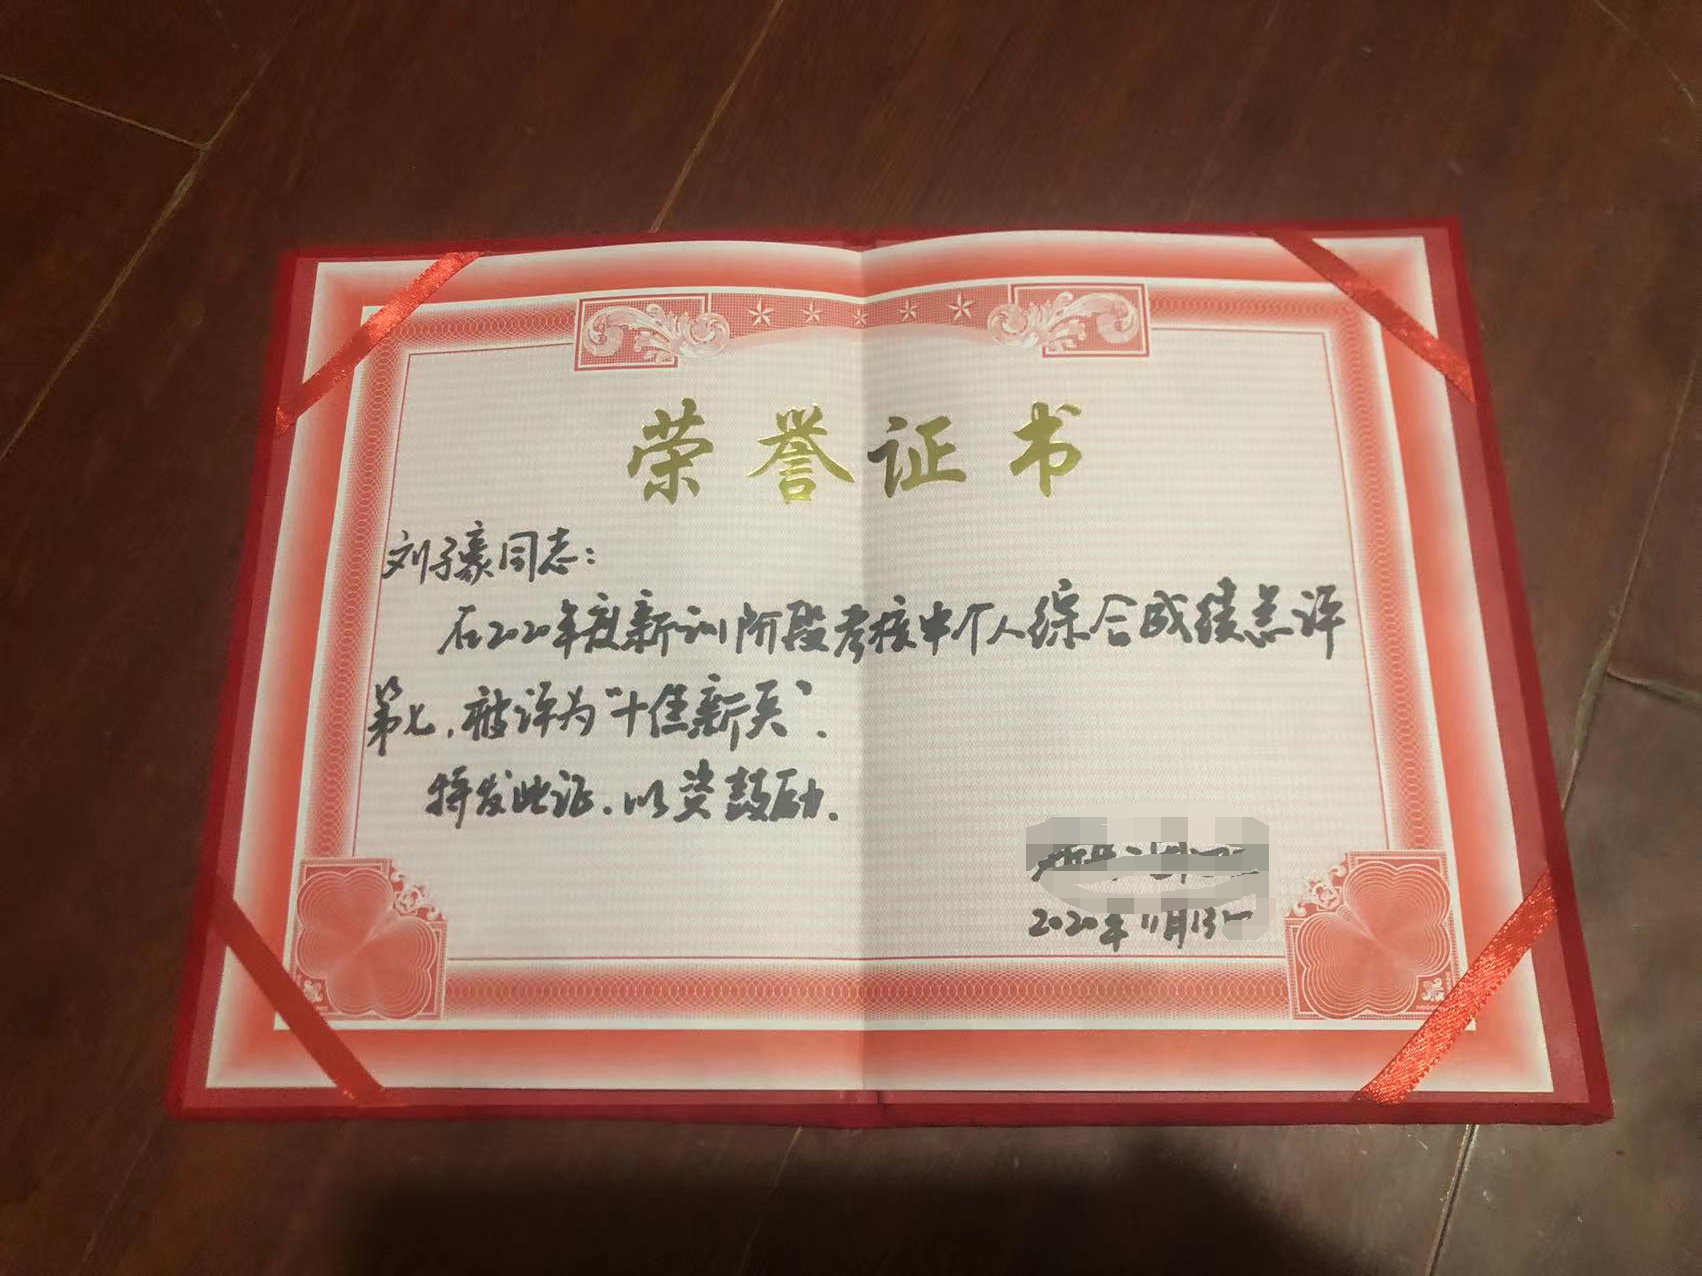 荣誉证书
刘子豪同志：
在2020年度新训阶段考核中个人综合成绩总评
第七，被评为“十佳新兵”．
特发此证．以资鼓励．
2020年11月13